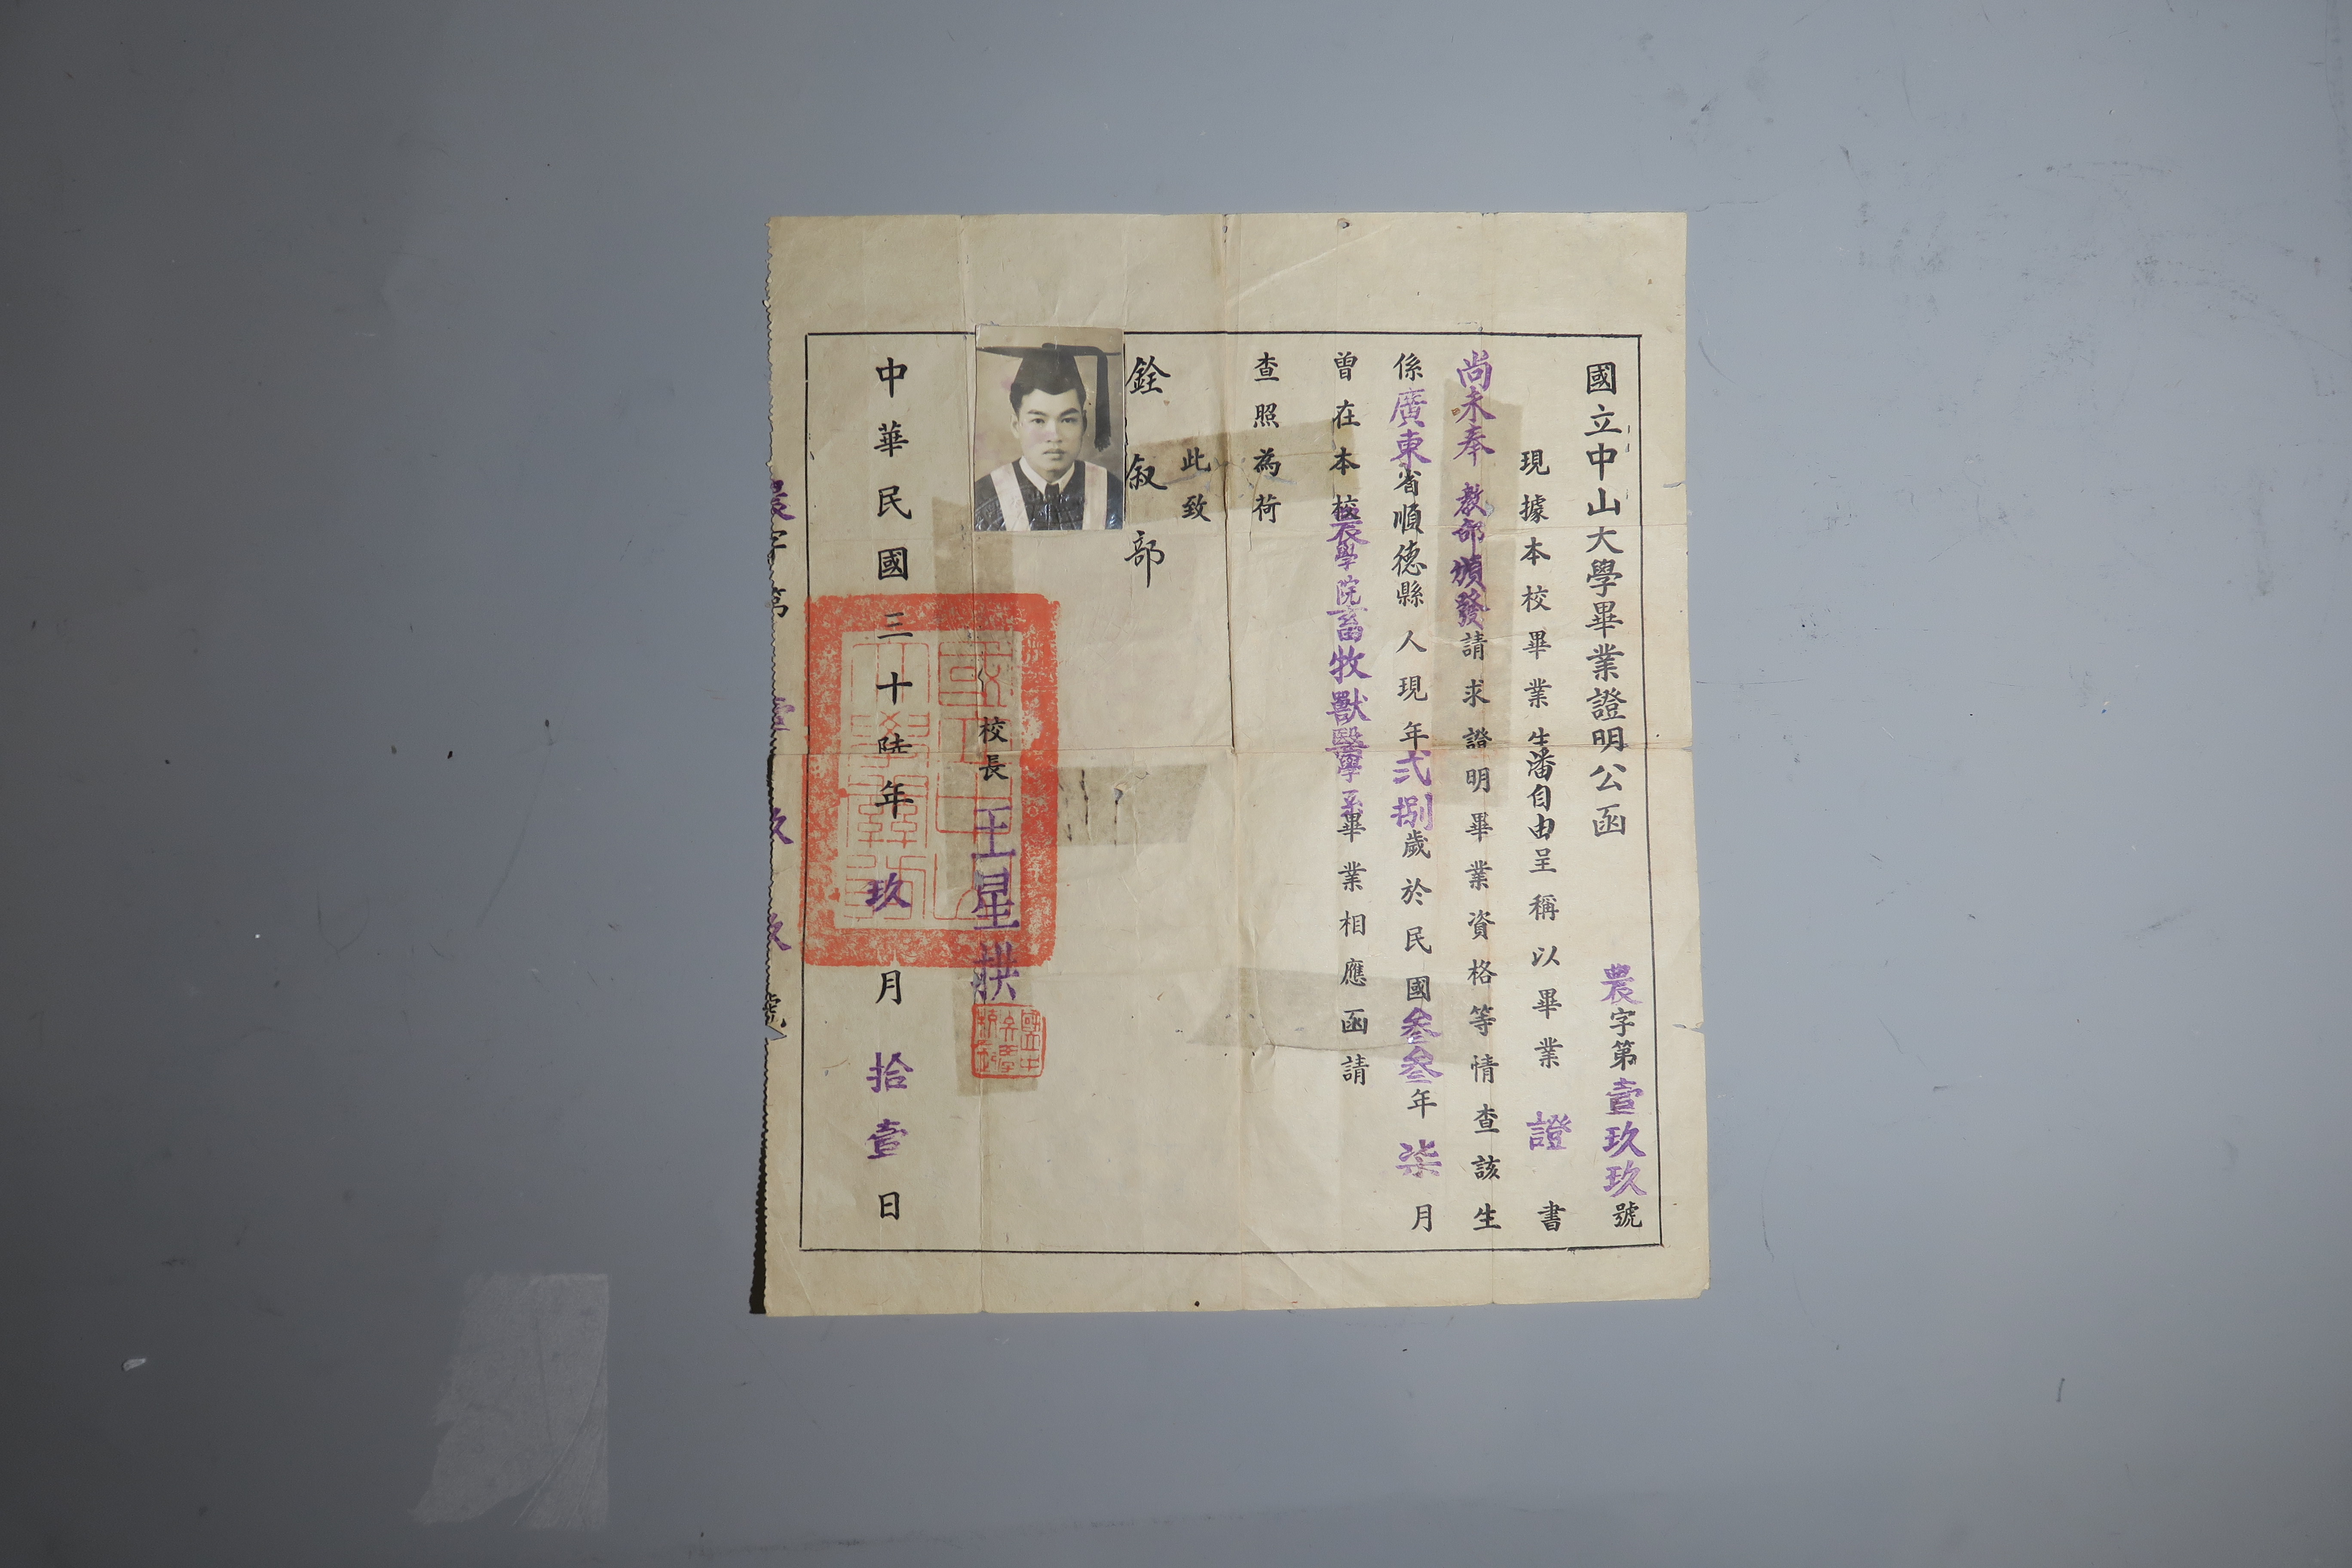 國立中山大學畢業證明公函
農字第壹玖玖號
現據本校畢業生潘自由呈稱以畢業證書
尚未奉教部頒發請求證明畢業資格等情查該生
係廣東省順德縣人現年弍捌歲於民國叁叁年柒月
曾在本校農學院畜牧獸醫學系畢業相應函請
查照為荷
此致
銓叙部
校長王星拱
中華民國三十陸年玖月拾壹日
農字第壹玖玖號